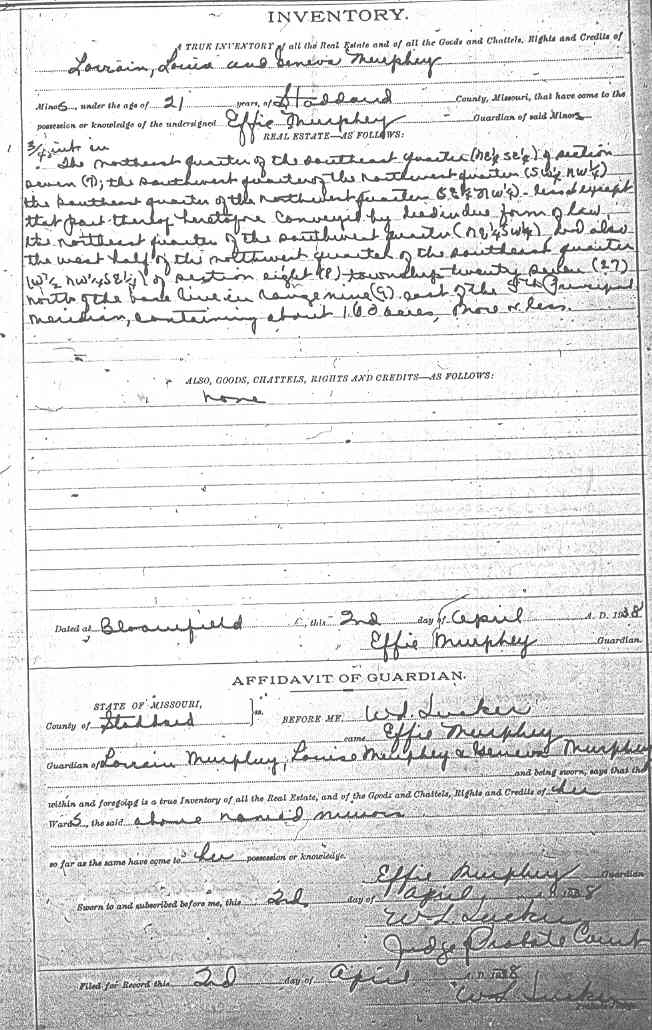 INVENTORY.
A TRUE INVENTORY of all the Real Estate and of all the Goods and Chattels, Rights and Credits of
Lorrain, Louise and Geneva Murphey
Minors, under the age of 21 years, of Stoddard County, Missouri, that have come to the
possession or knowledge of the undersigned Effie Murphey Guardian of said Minors
REAL ESTATE—AS FOLLOWS:
3/4 int in
The northeast quarter of the southeast quarter (NE¼ SE¼) of section
seven (7); the southwest quarter of the northwest quarter (SW¼ NW¼)
the southeast quarter of the northwest quarter SE¼ NW¼) - less & except
that part thereof heretofore conveyed by deed in due form of law,
the northeast quarter of the southwest quarter (NE¼ SW¼) and also
the west half of the northwest quarter of the southeast quarter
(W½ NW¼ SE¼) of section eight (8) township twenty seven (27)
north of the base line in range nine (9) east of the 5th Principal
Meridian, containing about 160 acres, more or less.
ALSO, GOODS, CHATTELS, RIGHTS AND CREDITS—AS FOLLOWS:
none
Dated at Bloomfield, this 2nd day of April A. D. 1938
Effie Murphey Guardian.
AFFIDAVIT OF GUARDIAN.
STATE OF MISSOURI,
County of Stoddard } ss. BEFORE ME, W. L. Tucker
came Effie Murphey
Guardian of Lorrain Murphey, Louise Murphey & Geneva Murphey
and being sworn, says that the
within and foregoing is a true Inventory of all the Real Estate, and of the Goods and Chattels, Rights and Credits of her
Wards, the said above named minors
so far as the same have come to her possession or knowledge.
Effie Murphey Guardian
Sworn to and subscribed before me, this 2nd day of April, 1938
W L Tucker
Judge Probate Court
Filed for Record this 2nd day of April A. D. 1938
W L Tucker